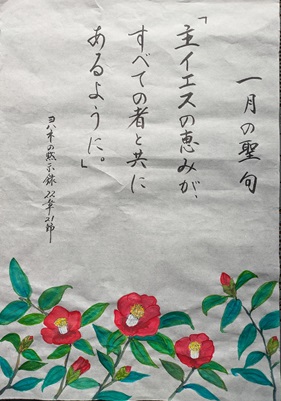 一月の聖句
「主イエスの恵みが、
すべての者と共に
あるように。」
ヨハネの黙示録22章21節